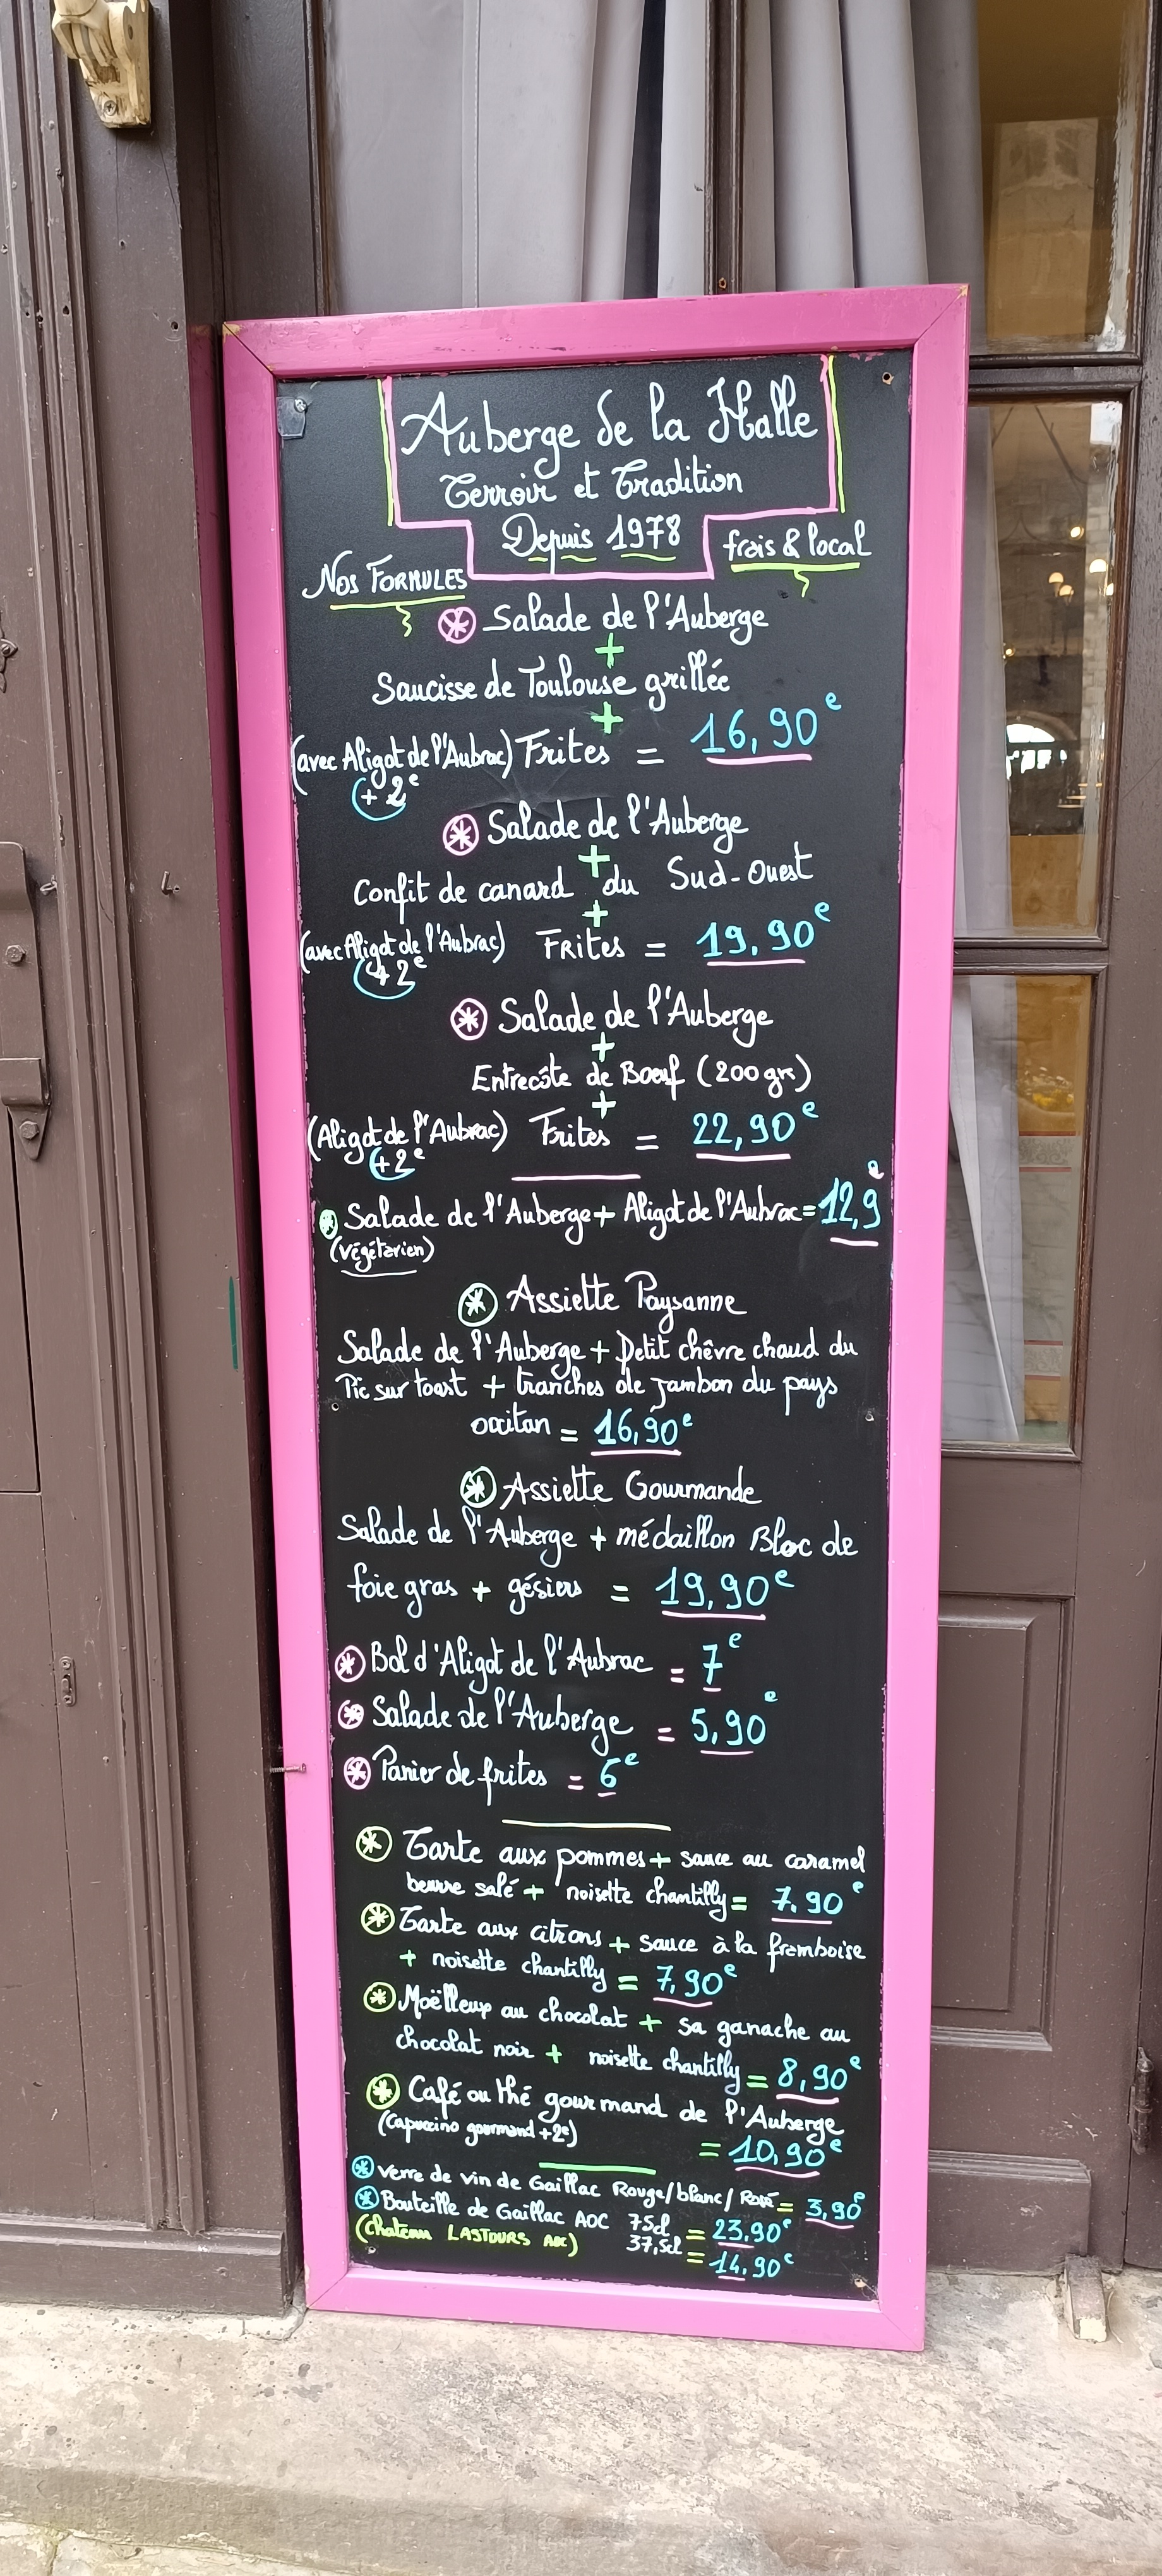 Auberge de la Halle
Terroir et Tradition
Depuis 1978
frais & local
Nos FORMULES
Salade de l'Auberge
+
Saucisse de Toulouse grillée
+
(avec Aligot de l'Aubrac) Frites = 16,90€
(+ 2€
Salade de l'Auberge
+
Confit de canard du Sud-Ouest
+
(avec Aligot de l'Aubrac) Frites = 19,90€
+2€
Salade de l'Auberge
+
Entrecôte de Boeuf (200 gr)
+
(Aligot de l'Aubrac) Frites = 22,90€
+2€
Salade de l'Auberge + Aligot de l'Aubrac = 12,9€
(végétarien)
Assiette Paysanne
Salade de l'Auberge + Petit chêvre chaud du
Pic sur toast + tranches de jambon du pays
occitan = 16,90€
Assiette Gourmande
Salade de l'Auberge + médaillon Bloc de
foie gras + gésiers = 19,90€
Bol d'Aligot de l'Aubrac = 7€
Salade de l'Auberge = 5,90€
Panier de frites = 6€
Tarte aux pommes + sauce au caramel
beurre salé + noisette chantilly = 7.90€
Tarte aux citrons + sauce à la framboise
+ noisette chantilly = 7,90€
Moëlleux au chocolat + sa ganache au
chocolat noir + noisette chantilly = 8,90€
Café ou thé gourmand de l'Auberge
(Capuccino gourmand +2€)
= 10,90€
verre de vin de Gaillac Rouge/blanc/Rosé = 3,90€
Bouteille de Gaillac AOC 75cl = 23,90€
(chateau LASTOURS AOC) 37,5cl = 14,90€